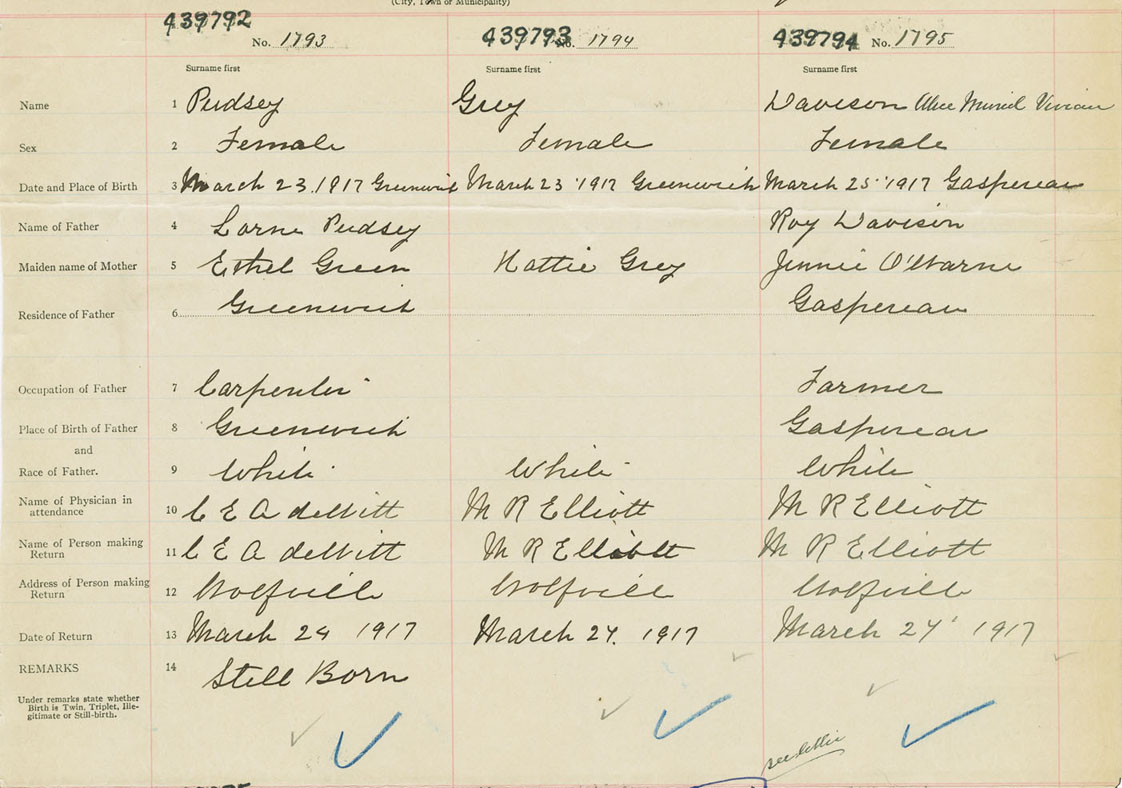 (City, Town or Municipality)
439792 No. 1793 439793 No. 1794 439794 No. 1795
Surname first Surname first Surname first
Name 1 Pudsey Grey Davison Alice Muriel Vivian
Sex 2 Female Female Female
Date and Place of Birth 3 March 23 1917 Greenwich March 23 1917 Greenwich March 25 1917 Gaspereau
Name of Father 4 Lorne Pudsey Roy Davison
Maiden name of Mother 5 Ethel Green Hattie Grey Jennie
Residence of Father 6 Greenwich Gaspereau
Occupation of Father 7 Carpenter Farmer
Place of Birth of Father 8 Greenwich Gaspereau
and
Race of Father. 9 White White White
Name of Physician in attendance 10 C E A deWitt M R Elliott M R Elliott
Name of Person making Return 11 C E A deWitt M R Elliott M R Elliott
Address of Person making Return 12 Wolfville Wolfville Wolfville
Date of Return 13 March 24 1917 March 27. 1917 March 27 1917
REMARKS 14 Still Born
Under remarks state whether
Birth is Twin, Triplet, Ille-
gitimate or Still-birth.
see letter